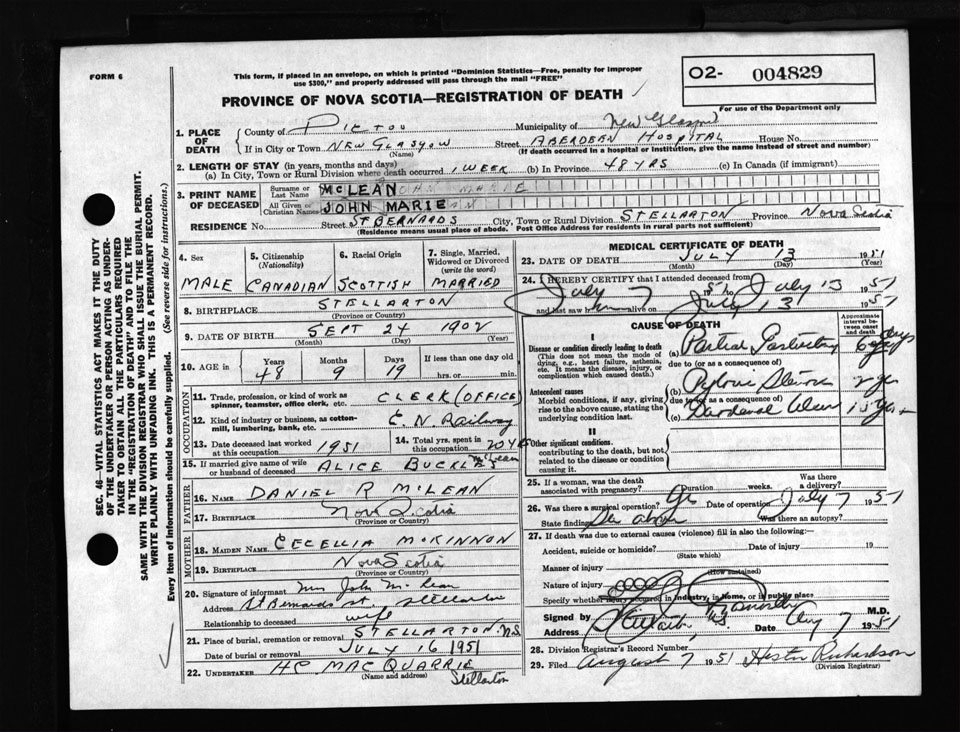 FORM 6
This form, if placed in an envelope, on which is printed "Dominion Statistics—Free, penalty for improper
use $300," and properly addressed will pass through the mail "FREE"
02- 004829
For use of the Department only
PROVINCE OF NOVA SCOTIA—REGISTRATION OF DEATH
1. PLACE OF DEATH
County of PICTOU Municipality of New Glasgow
If in City or Town NEW GLASGOW Street ABERDEEN HOSPITAL House No.
(Name) (If death occurred in a hospital or institution, give the name instead of street and number)
2. LENGTH OF STAY (in years, months and days)
(a) In City, Town or Rural Division where death occurred 1 WEEK (b) In Province 48 YRS (c) In Canada (if immigrant)
3. PRINT NAME OF DECEASED
Surname or Last Name McLEAN
All Given or Christian Names JOHN MARIE
RESIDENCE No. Street ST BERNARDS City, Town or Rural Division STELLARTON Province Nova Scotia
(Residence means usual place of abode. Post Office Address for residents in rural parts not sufficient)
4. Sex 5. Citizenship (Nationality) 6. Racial Origin 7. Single, Married, Widowed or Divorced (write the word)
MALE CANADIAN SCOTTISH MARRIED
8. BIRTHPLACE STELLARTON
(Province or Country)
9. DATE OF BIRTH SEPT 24 1902
(Month) (Day) (Year)
10. AGE in Years Months Days If less than one day old
48 9 19 hrs. or min.
OCCUPATION
11. Trade, profession, or kind of work as spinner, teamster, office clerk, etc. CLERK (OFFICE)
12. Kind of industry or business, as cotton-mill, lumbering, bank, etc. C. N. Railway
13. Date deceased last worked at this occupation 1951 14. Total yrs. spent in this occupation
15. If married give name of wife or husband of deceased ALICE BUCKLES McLean
FATHER
16. NAME DANIEL R McLEAN
17. BIRTHPLACE Nova Scotia
(Province or Country)
MOTHER
18. MAIDEN NAME CECELLIA McKINNON
19. BIRTHPLACE Nova Scotia
(Province or Country)
20. Signature of informant Mrs John McLean
Address St Bernards St. Stellarton
Relationship to deceased wife
21. Place of burial, cremation or removal STELLARTON N.S.
Date of burial or removal JULY 16 1951
22. UNDERTAKER H.C. MACQUARRIE
(Name and address) Stellarton
MEDICAL CERTIFICATE OF DEATH
23. DATE OF DEATH JULY 13 1951
(Month) (Day) (Year)
24. I HEREBY CERTIFY that I attended deceased from
July 7 1951 to July 13 1951
and last saw h alive on July 13 1951
CAUSE OF DEATH
Approximate interval between onset and death
I
Disease or condition directly leading to death (a) Partial Gastrectomy 6 days
(This does not mean the mode of dying, e.g., heart failure, asthenia, etc. It means the disease, injury, or complication which caused death.)
due to (or as a consequence of)
Antecedent causes (b) Pyloric Stenosis 2 yrs
Morbid conditions, if any, giving rise to the above cause, stating the underlying condition last.
due to (or as a consequence of)
(c) Duodenal Ulcer 15 yrs +
II
Other significant conditions.
contributing to the death, but not related to the disease or condition causing it.
25. If a woman, was the death associated with pregnancy? Duration weeks. Was there a delivery?
26. Was there a surgical operation? yes Date of operation July 7 1951
State findings See above Was there an autopsy?
27. If death was due to external causes (violence) fill in also the following:—
Accident, suicide or homicide? Date of injury 19
(State which)
Manner of injury
(How sustained)
Nature of injury
Specify whether injury occurred in industry, in home, or in public place
Signed by M.D.
Address Stellarton N.S. Date Aug 7 1951
28. Division Registrar's Record Number
29. Filed August 7 1951 Hester Richardson
(Division Registrar)
SEC. 46—VITAL STATISTICS ACT MAKES IT THE DUTY
OF THE UNDERTAKER OR PERSON ACTING AS UNDER-
TAKER TO OBTAIN ALL THE PARTICULARS REQUIRED
IN THE "REGISTRATION OF DEATH" AND TO FILE THE
SAME WITH THE DIVISION REGISTRAR WHO SHALL ISSUE THE BURIAL PERMIT.
WRITE PLAINLY WITH UNFADING INK. THIS IS A PERMANENT RECORD.
Every item of information should be carefully supplied. (See reverse side for instructions.)